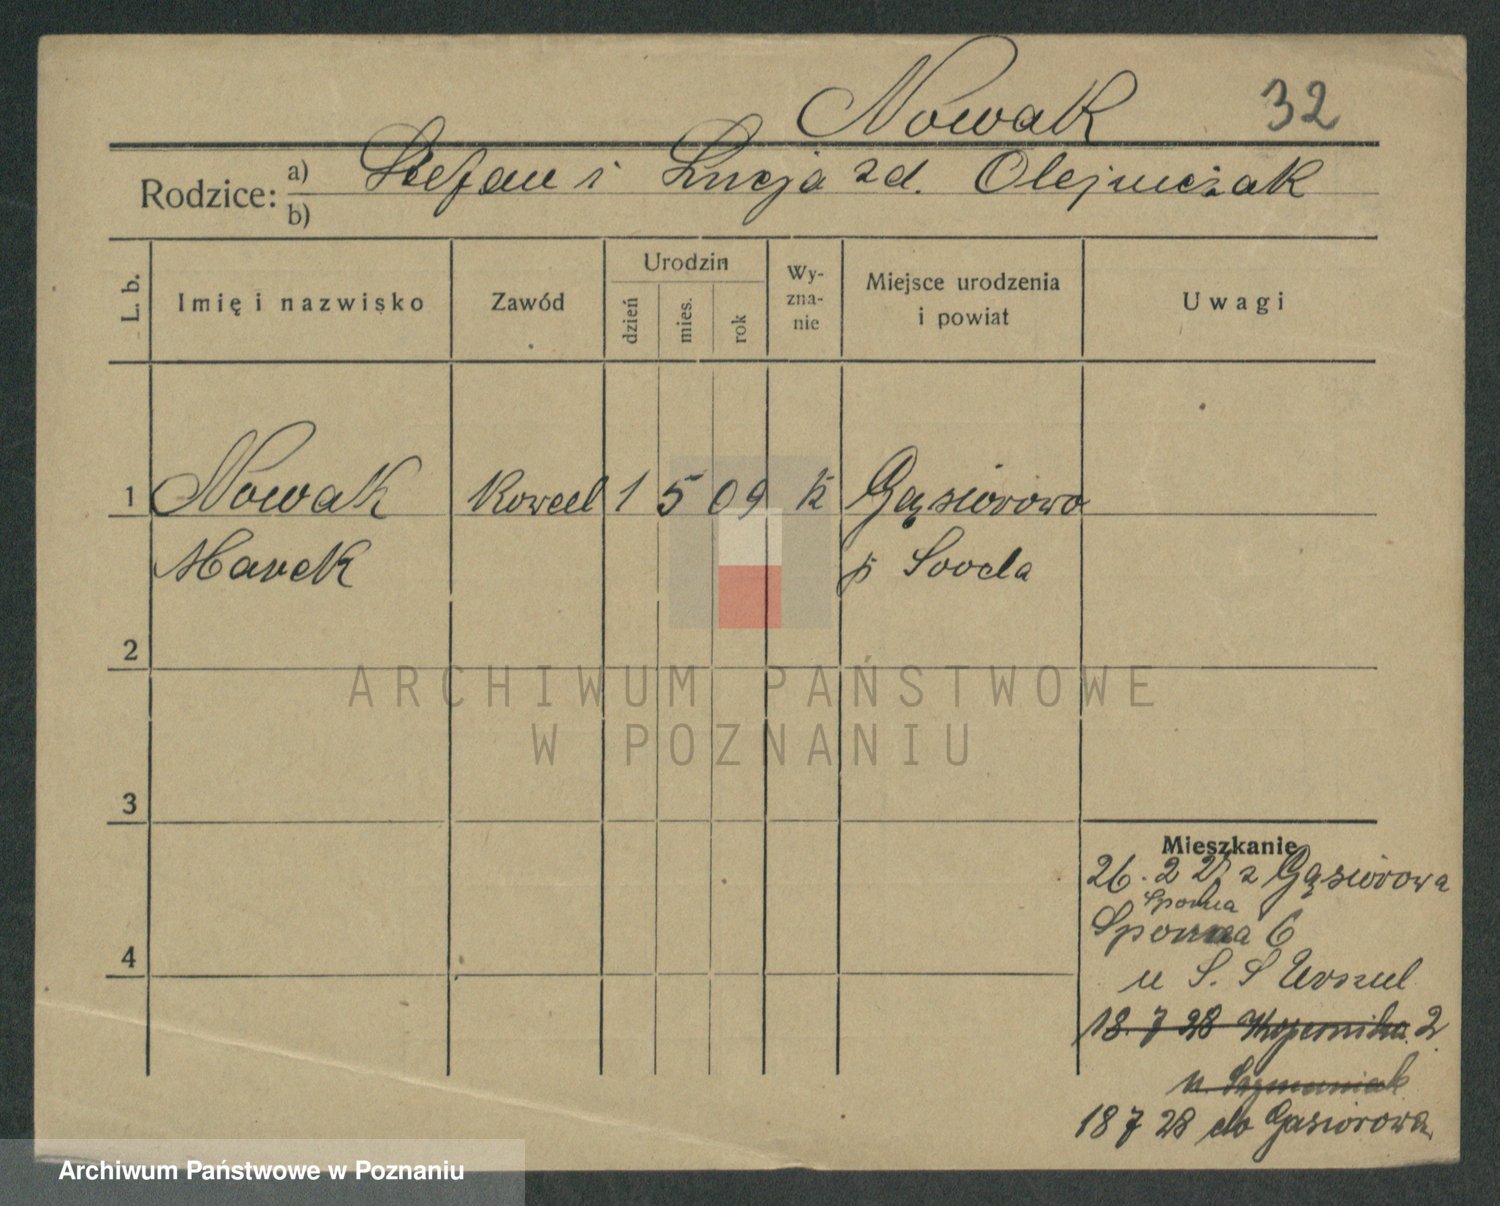 Nowak 32
Rodzice: a) Stefan i Łucja zd. Olejniczak
b)
L. b. Imię i nazwisko Zawód Urodzin dzień mies. rok Wy-zna-nie Miejsce urodzenia i powiat Uwagi
1 Nowak Kowal 1 5 09 k Gąsiorowo
Marek p Środa
2
ARCHIWUM PAŃSTWOWE
W POZNANIU
3
Mieszkanie
26. 2 27 z Gąsiorowa
Sporna
Sporna 6
u S. S Urszul
4
18. 7 28 Kopernika 2
u. Szymaniak
18 7 28 do Gasiorowa
Archiwum Państwowe w Poznaniu